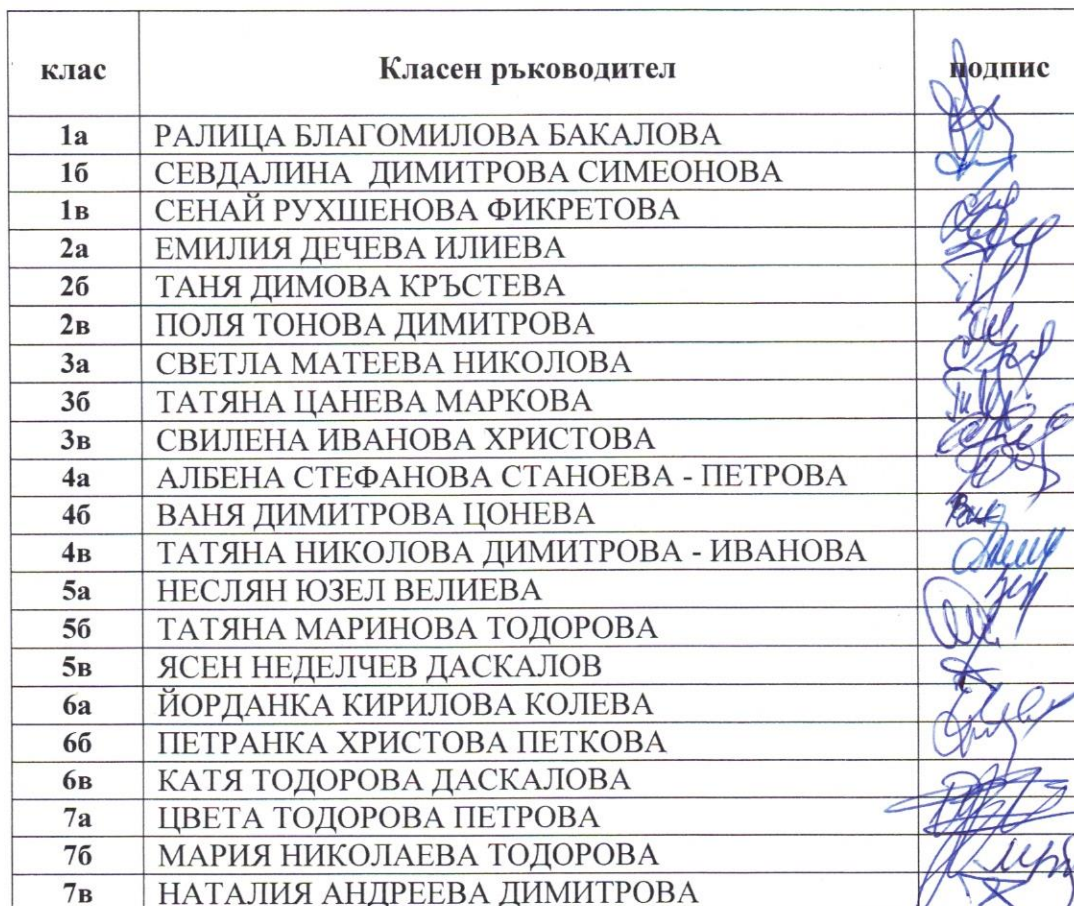 клас Класен ръководител подпис
1а РАЛИЦА БЛАГОМИЛОВА БАКАЛОВА
1б СЕВДАЛИНА ДИМИТРОВА СИМЕОНОВА
1в СЕНАЙ РУХШЕНОВА ФИКРЕТОВА
2а ЕМИЛИЯ ДЕЧЕВА ИЛИЕВА
2б ТАНЯ ДИМОВА КРЪСТЕВА
2в ПОЛЯ ТОНОВА ДИМИТРОВА
3а СВЕТЛА МАТЕЕВА НИКОЛОВА
3б ТАТЯНА ЦАНЕВА МАРКОВА
3в СВИЛЕНА ИВАНОВА ХРИСТОВА
4а АЛБЕНА СТЕФАНОВА СТАНОЕВА - ПЕТРОВА
4б ВАНЯ ДИМИТРОВА ЦОНЕВА
4в ТАТЯНА НИКОЛОВА ДИМИТРОВА - ИВАНОВА
5а НЕСЛЯН ЮЗЕЛ ВЕЛИЕВА
5б ТАТЯНА МАРИНОВА ТОДОРОВА
5в ЯСЕН НЕДЕЛЧЕВ ДАСКАЛОВ
6а ЙОРДАНКА КИРИЛОВА КОЛЕВА
6б ПЕТРАНКА ХРИСТОВА ПЕТКОВА
6в КАТЯ ТОДОРОВА ДАСКАЛОВА
7а ЦВЕТА ТОДОРОВА ПЕТРОВА
7б МАРИЯ НИКОЛАЕВА ТОДОРОВА
7в НАТАЛИЯ АНДРЕЕВА ДИМИТРОВА